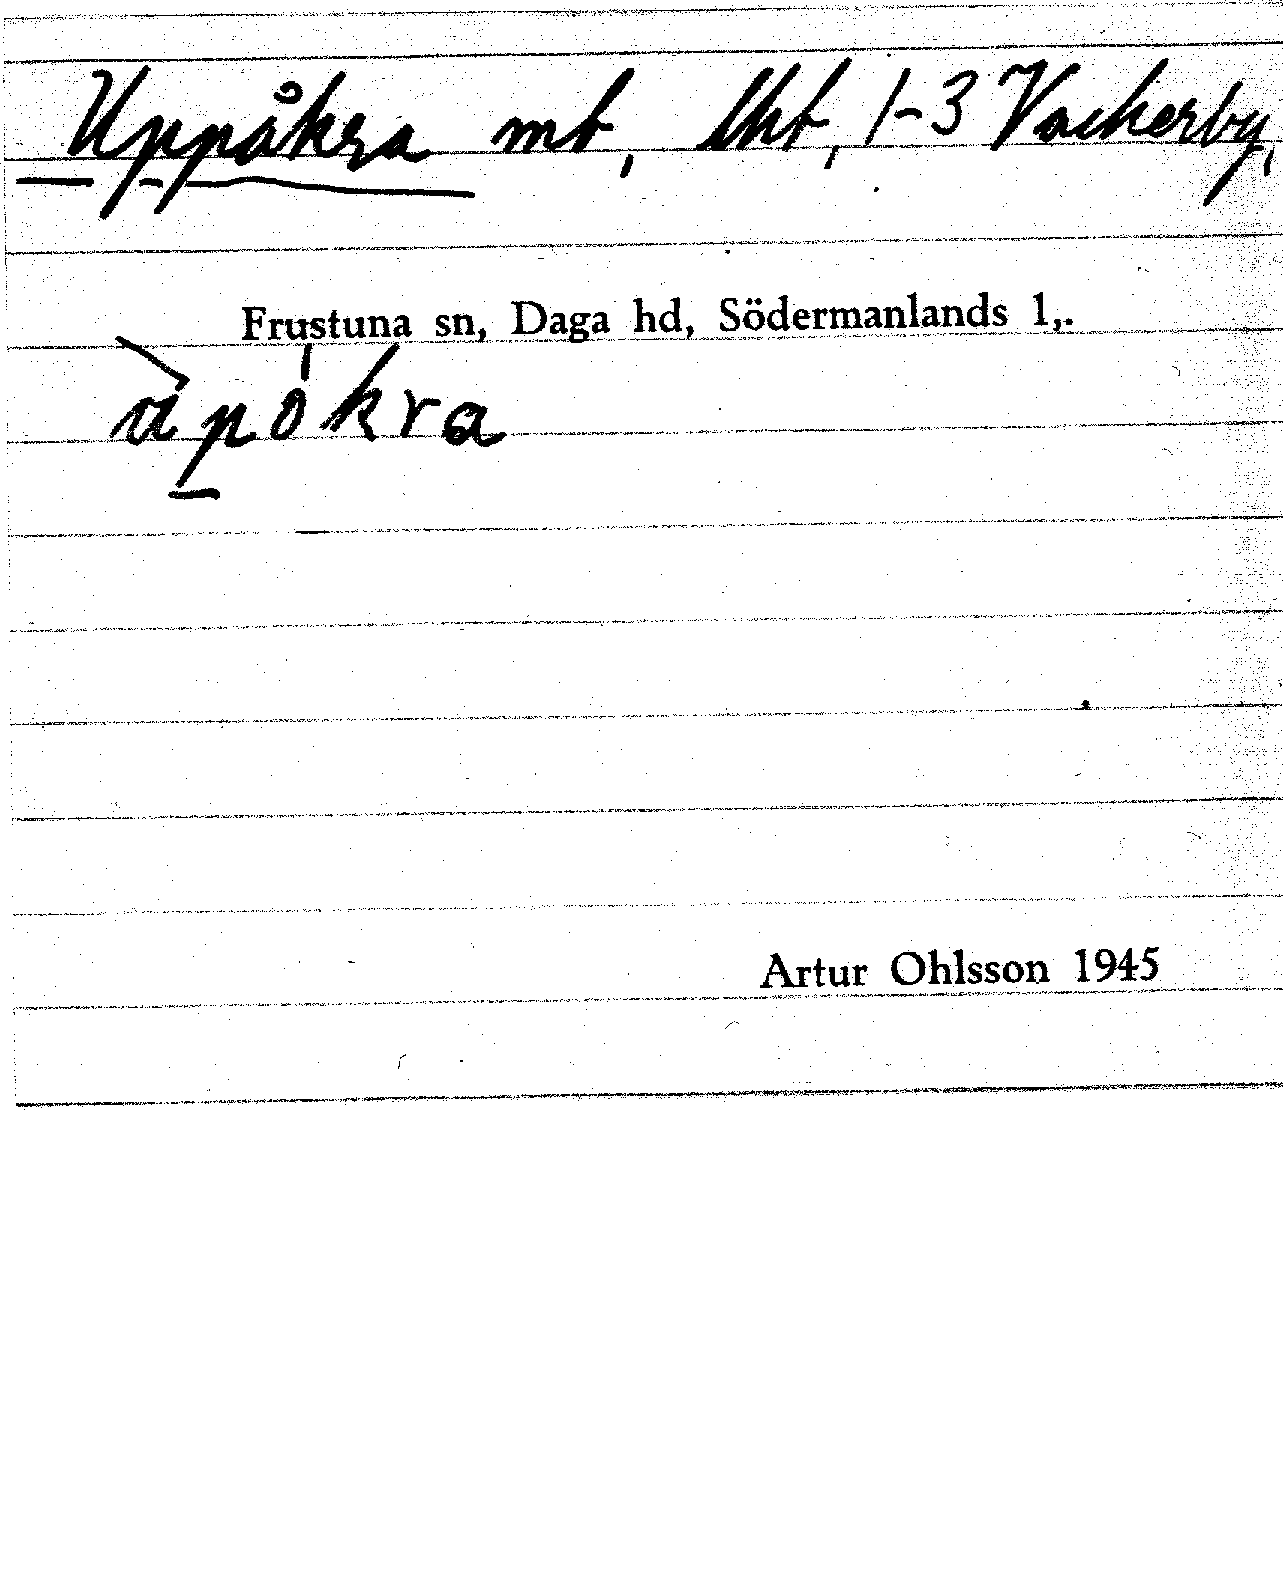 Uppåkra mt, lht, 1-3 Vackerby,
Frustuna sn, Daga hd, Södermanlands l,.
ùpókra
Artur Ohlsson 1945